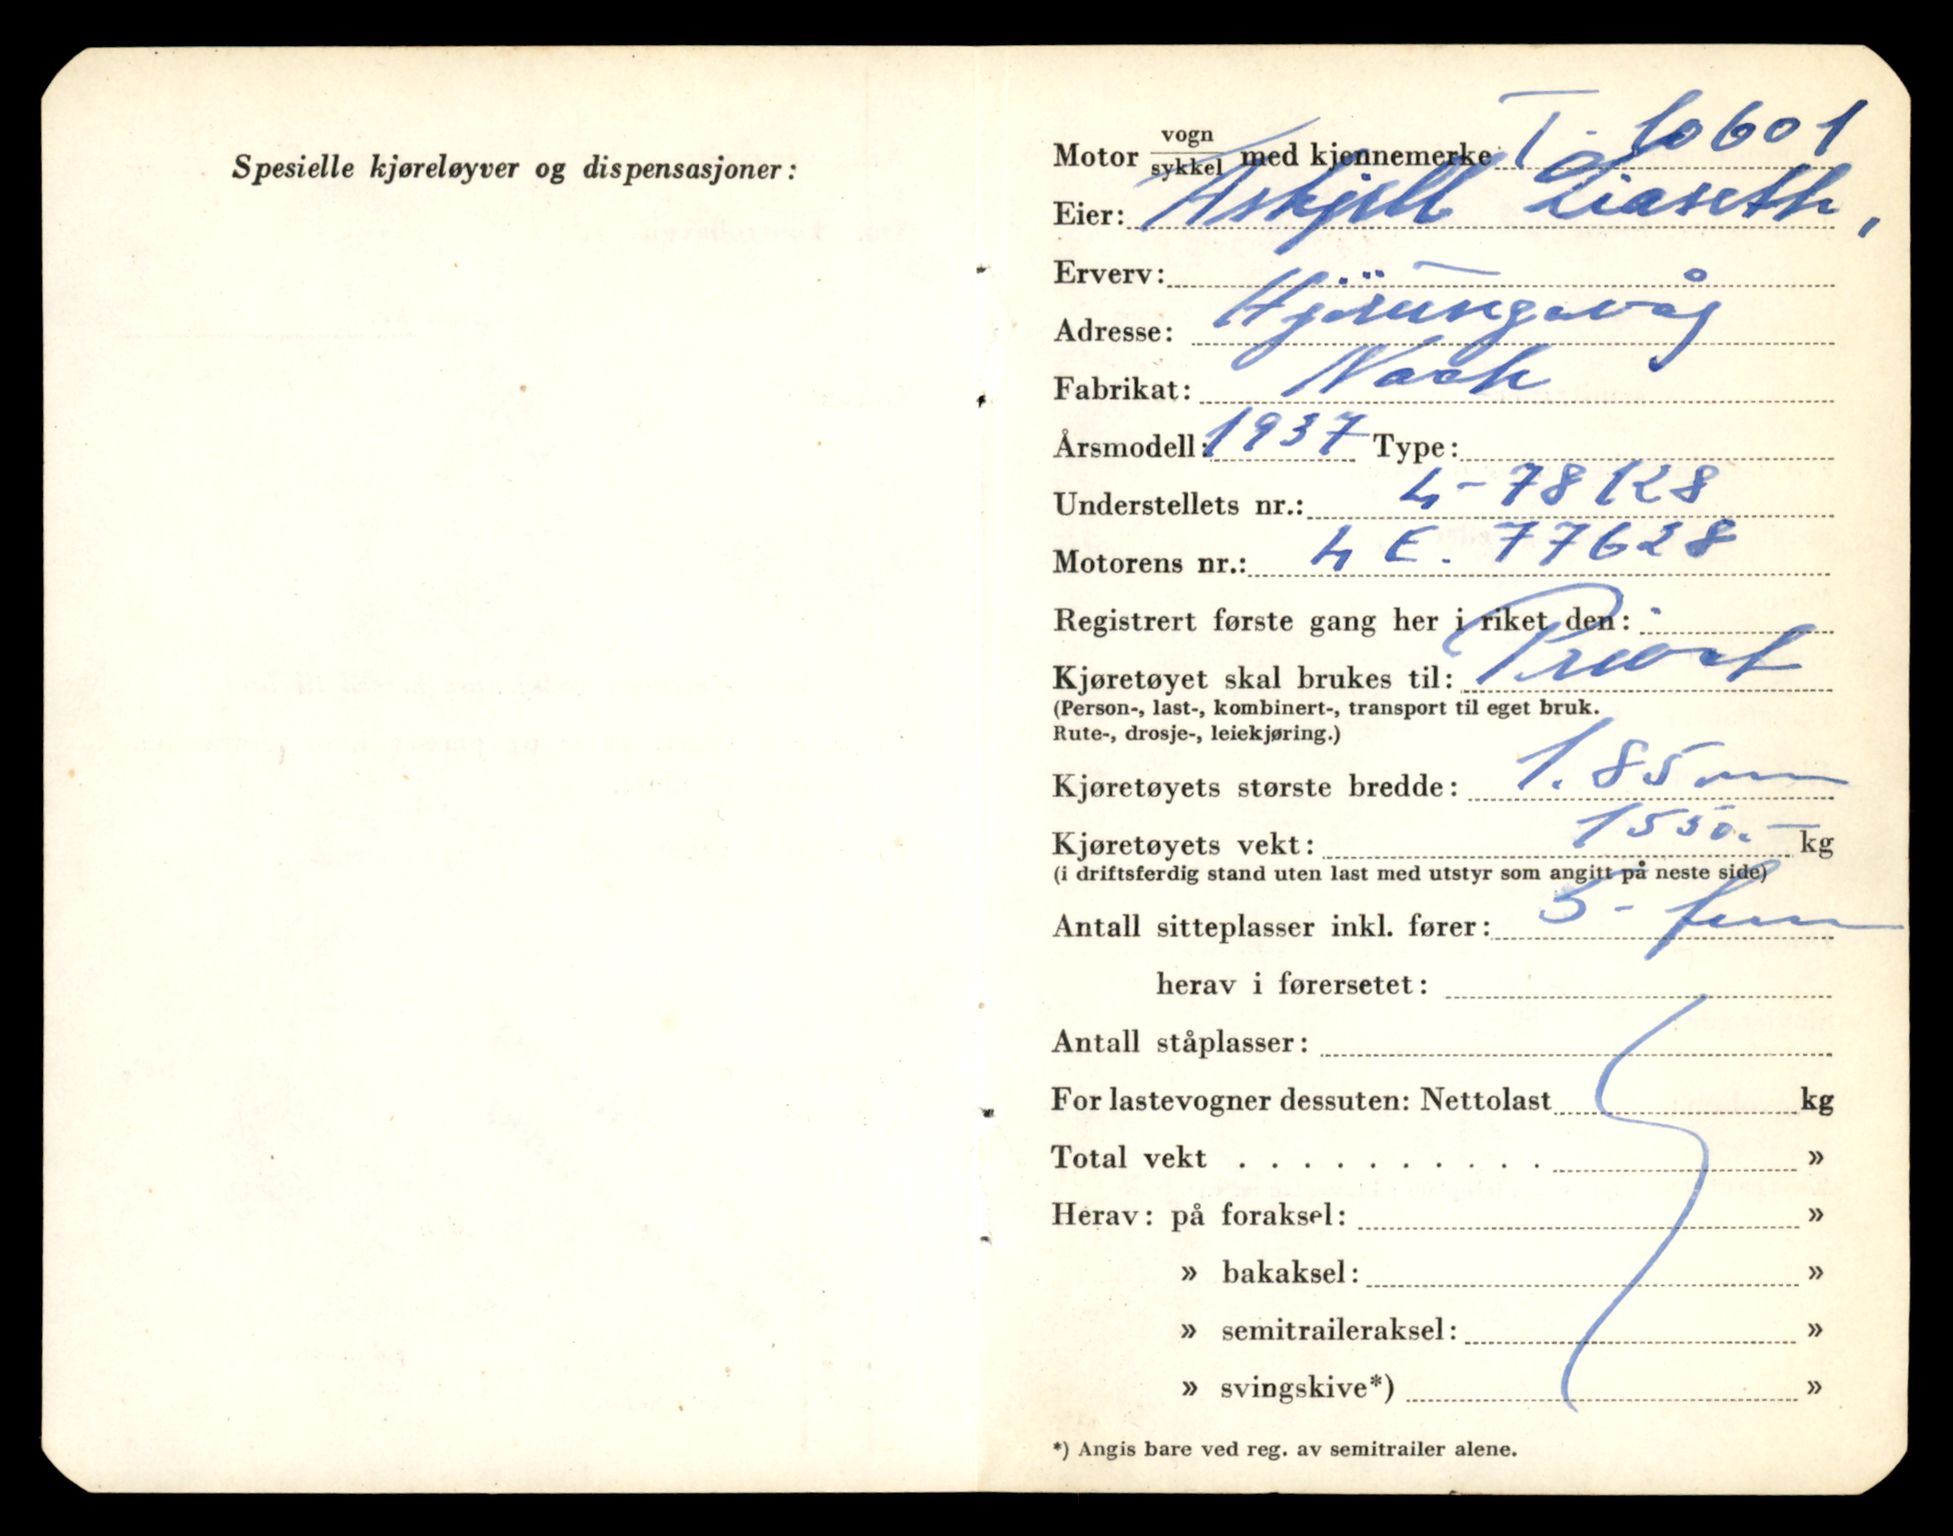 Spesielle kjøreløyver og dispensasjoner:
Motor vogn/sykkel med kjennemerke: T-10601
Eier: Askjell Liaseth,
Erverv:
Adresse: Hjørungavåg
Fabrikat: Nash
Årsmodell: 1937 Type:
Understellets nr.: L-78 K8
Motorens nr.: L E. 77628
Registrert første gang her i riket den:
Kjøretøyet skal brukes til: Privat
(Person-, last-, kombinert-, transport til eget bruk.
Rute-, drosje-, leiekjøring.)
Kjøretøyets største bredde: 1.85 m
Kjøretøyets vekt: 1550.- kg
(i driftsferdig stand uten last med utstyr som angitt på neste side)
Antall sitteplasser inkl. fører: 5 - fem
herav i førersetet:
Antall ståplasser:
For lastevogner dessuten: Nettolast kg
Total vekt . . . . . . . . . . »
Herav: på foraksel: »
» bakaksel: »
» semitraileraksel: »
» svingskive*) »
*) Angis bare ved reg. av semitrailer alene.